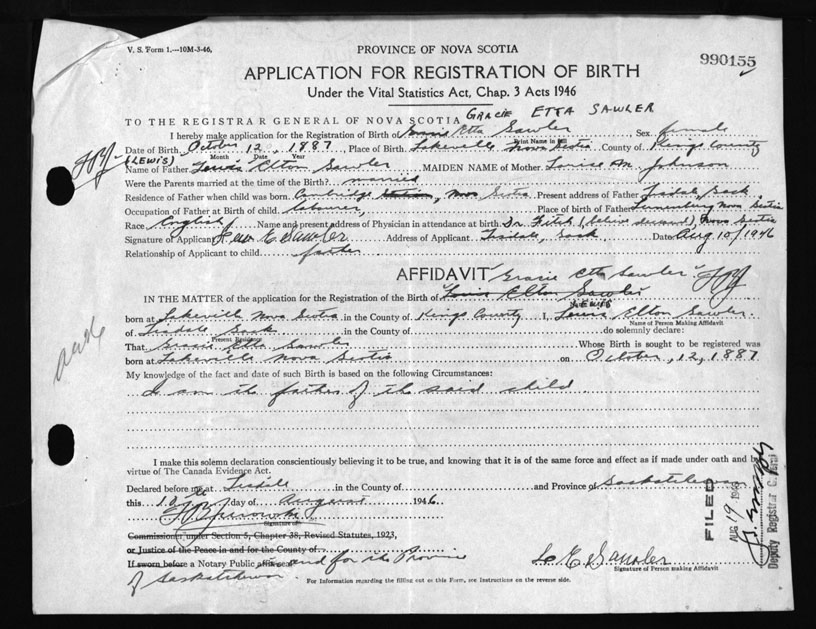 V. S. Form 1.—10M-3-46.
PROVINCE OF NOVA SCOTIA
990155
APPLICATION FOR REGISTRATION OF BIRTH
Under the Vital Statistics Act, Chap. 3 Acts 1946
GRACIE ETTA SAWLER
TO THE REGISTRAR GENERAL OF NOVA SCOTIA
I hereby make application for the Registration of Birth of Gracie Etta Sawler, Sex female
Print Name in full
Date of Birth October 12, 1887, Place of Birth Lakeville Nova Scotia County of Kings County
Month Date Year
(LEWIS)
Name of Father Louis Elton Sawler MAIDEN NAME of Mother Louise M. Johnson
Were the Parents married at the time of the Birth? married
Residence of Father when child was born. Cambridge Station, Nova Scotia. Present address of Father Tisdale, Sask.
Occupation of Father at Birth of child. labourer, Place of birth of Father Lunenburg Nova Scotia
Race English Name and present address of Physician in attendance at birth. Dr. Fitch (believe deceased) Nova Scotia
Signature of Applicant Lewis E. Sawler Address of Applicant Tisdale, Sask Date Aug 10/1946
Relationship of Applicant to child father
AFFIDAVIT Gracie Etta Sawler
IN THE MATTER of the application for the Registration of the Birth of Louis Elton Sawler
LEWIS
born at Lakeville Nova Scotia in the County of Kings County I, Louis Elton Sawler
Name of Person Making Affidavit
of Tisdale Sask in the County of do solemnly declare:
Present Residence
That Gracie Etta Sawler Whose Birth is sought to be registered was
born at Lakeville Nova Scotia on October, 12, 1887
My knowledge of the fact and date of such Birth is based on the following Circumstances:
I am the father of the said child
I make this solemn declaration conscientiously believing it to be true, and knowing that it is of the same force and effect as if made under oath and by
virtue of The Canada Evidence Act.
Declared before me at Tisdale in the County of and Province of Saskatchewan
this 10th day of August 1946
Signature of
Commissioner under Section 5, Chapter 38, Revised Statutes, 1923,
or Justice of the Peace in and for the County of
If sworn before a Notary Public affix seal and for the Province
of Saskatchewan
L. E. Sawler
Signature of Person making Affidavit
For Information regarding the filling out of this Form, see Instructions on the reverse side.
FILED
AUG 19 1946
Deputy Registrar